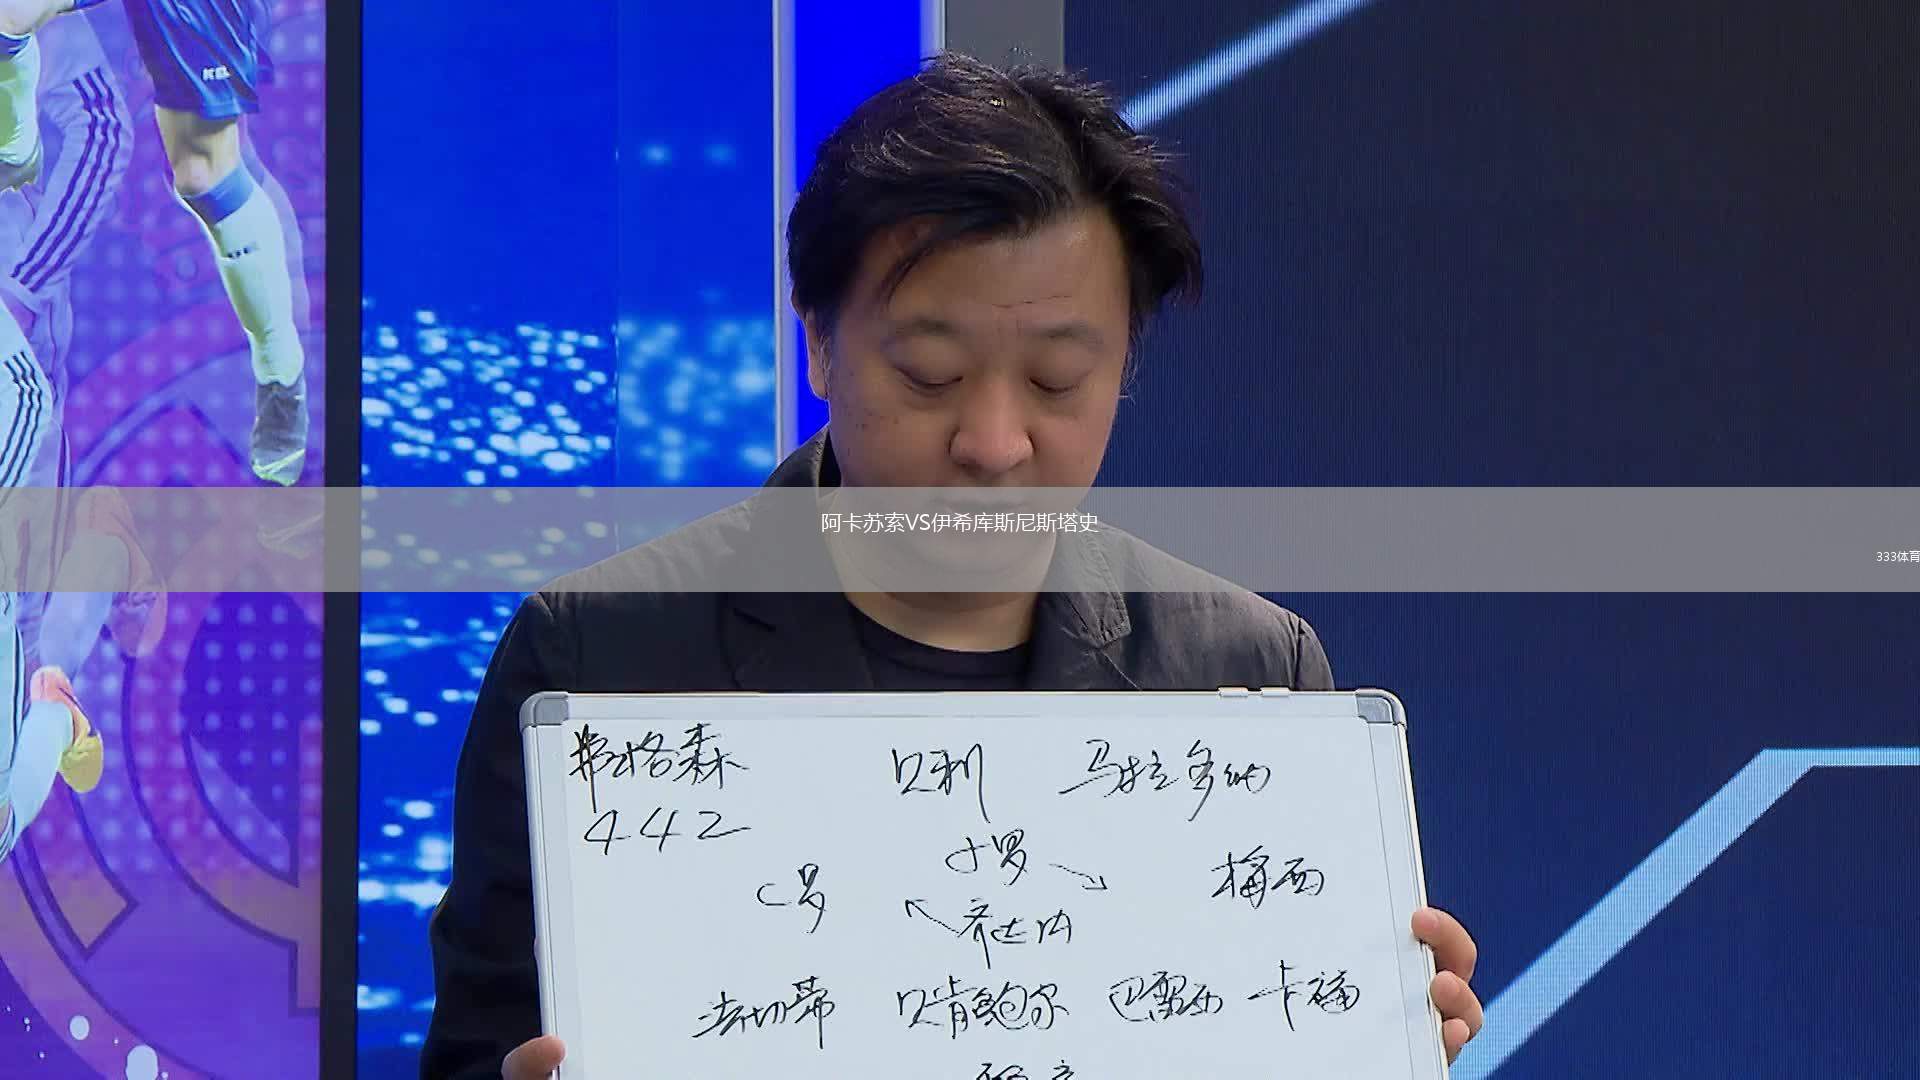 KEL
阿卡苏索VS伊希库斯尼斯塔史
333体育
弗格森 贝利 马拉多纳
442
小罗
C罗 梅西
齐达内
法切蒂 贝肯鲍尔 巴雷西 卡福